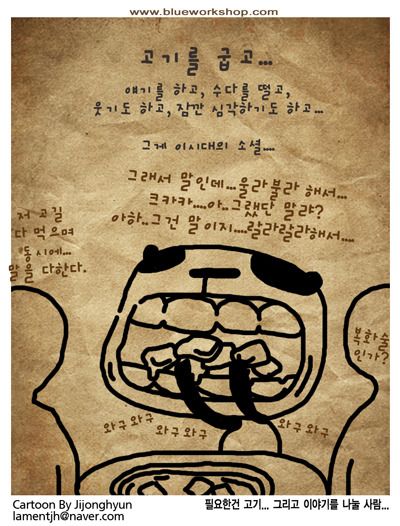 www.blueworkshop.com
고기를 굽고...
얘기를 하고, 수다를 떨고,
웃기도 하고, 잠깐 심각하기도 하고...
그게 이시대의 소셜....
그래서 말인데...울라불라 해서...
크카카....아..그랬단 말랴?
아하..그건 말이지....랄라랄라해서....
저 고길
다 먹으며
동시에...
말을 다한다.
복화술
인가?
와구 와구
와구 와구
와구 와구
Cartoon By Jijonghyun
lamentjh@naver.com
필요한건 고기... 그리고 이야기를 나눌 사람...